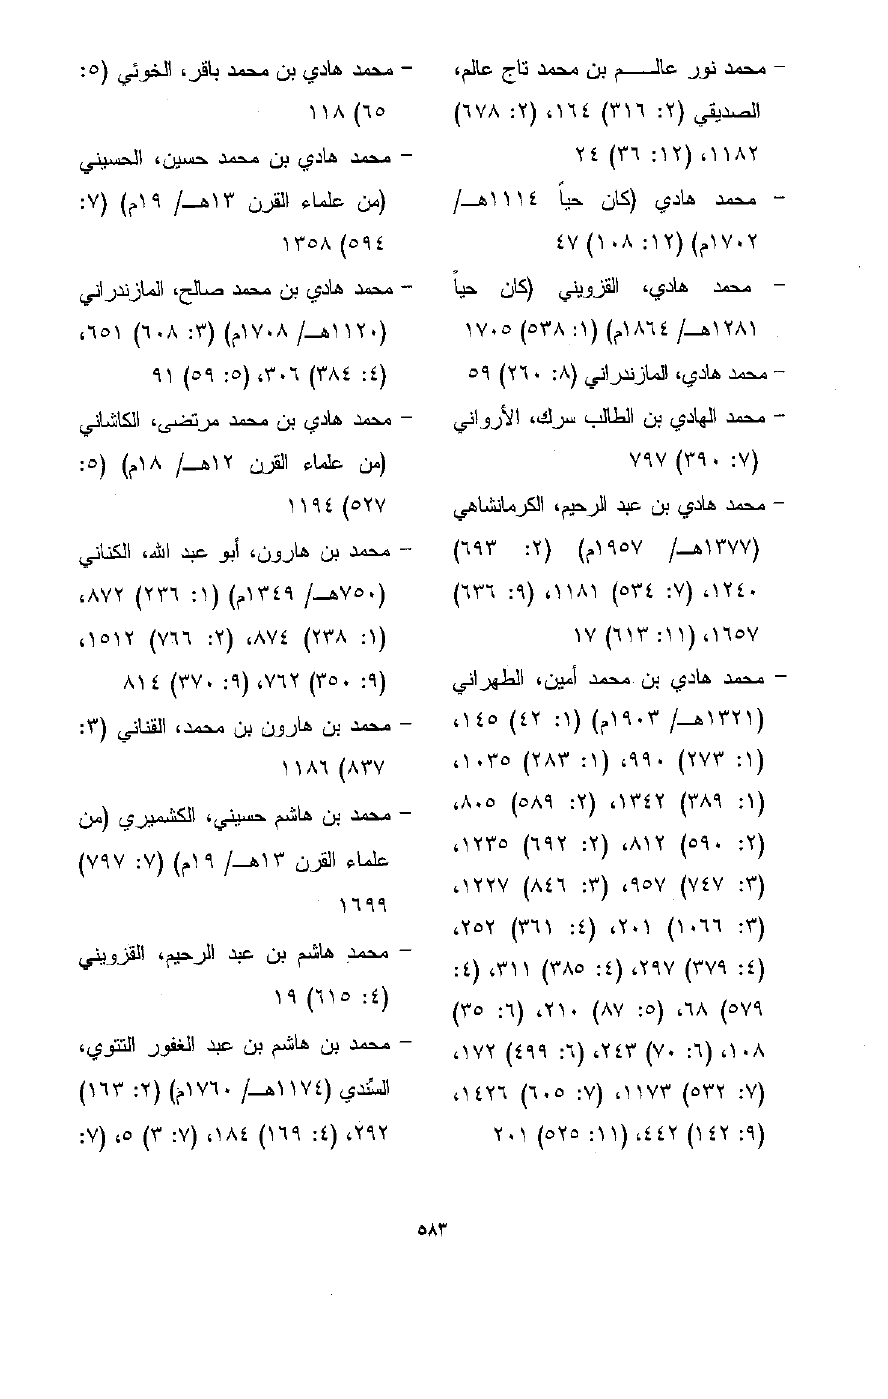 - محمد نور عالم بن محمد تاج عالم،
الصديقي (٢: ٣١٦) ١٦٤، (٢: ٦٧٨)
١١٨٢، (١٢: ٣٦) ٢٤
- محمد هادي (كان حياً ١١١٤هـ/
١٧٠٢م) (١٢: ١٠٨) ٤٧
- محمد هادي، القزويني (كان حياً
١٢٨١هـ/ ١٨٦٤م) (١: ٥٣٨) ١٧٠٥
- محمد هادي، المازندراني (٨: ٢٦٠) ٥٩
- محمد الهادي بن الطالب سرك، الأرواني
(٧: ٣٩٠) ٧٩٧
- محمد هادي بن عبد الرحيم، الكرمانشاهي
(١٣٧٧هـ/ ١٩٥٧م) (٢: ٦٩٣)
١٢٤٠، (٧: ٥٣٤) ١١٨١، (٩: ٦٣٦)
١٦٥٧، (١١: ٦١٣) ١٧
- محمد هادي بن محمد أمين، الطهراني
(١٣٢١هـ/ ١٩٠٣م) (١: ٤٢) ١٤٥،
(١: ٢٧٣) ٩٩٠، (١: ٢٨٣) ١٠٣٥،
(١: ٣٨٩) ١٣٤٢، (٢: ٥٨٩) ٨٠٥،
(٢: ٥٩٠) ٨١٢، (٢: ٦٩٢) ١٢٣٥،
(٣: ٧٤٧) ٩٥٧، (٣: ٨٤٦) ١٢٢٧،
(٣: ١٠٦٦) ٢٠١، (٤: ٣٦١) ٢٥٢،
(٤: ٣٧٩) ٢٩٧، (٤: ٣٨٥) ٣١١، (٤:
٥٧٩) ٦٨، (٥: ٨٧) ٢١٠، (٦: ٣٥)
١٠٨، (٦: ٧٠) ٢٤٣، (٦: ٤٩٩) ١٧٢،
(٧: ٥٣٢) ١١٧٣، (٧: ٦٠٥) ١٤٢٦،
(٩: ١٤٢) ٤٤٢، (١١: ٥٢٥) ٢٠١
- محمد هادي بن محمد باقر، الخوئي (٥:
٦٥) ١١٨
- محمد هادي بن محمد حسين، الحسيني
(من علماء القرن ١٣هـ/ ١٩م) (٧:
٥٩٤) ١٣٥٨
- محمد هادي بن محمد صالح، المازندراني
(١١٢٠هـ/ ١٧٠٨م) (٣: ٦٠٨) ٦٥١،
(٤: ٣٨٤) ٣٠٦، (٥: ٥٩) ٩١
- محمد هادي بن محمد مرتضى، الكاشاني
(من علماء القرن ١٢هـ/ ١٨م) (٥:
٥٢٧) ١١٩٤
- محمد بن هارون، أبو عبد الله، الكناني
(٧٥٠هـ/ ١٣٤٩م) (١: ٢٣٦) ٨٧٢،
(١: ٢٣٨) ٨٧٤، (٢: ٧٦٦) ١٥١٢،
(٩: ٣٥٠) ٧٦٢، (٩: ٣٧٠) ٨١٤
- محمد بن هارون بن محمد، القناني (٣:
٨٣٧) ١١٨٦
- محمد بن هاشم حسيني، الكشميري (من
علماء القرن ١٣هـ/ ١٩م) (٧: ٧٩٧)
١٦٩٩
- محمد هاشم بن عبد الرحيم، القزويني
(٤: ٦١٥) ١٩
- محمد بن هاشم بن عبد الغفور التتوي،
السِّندي (١١٧٤هـ/ ١٧٦٠م) (٢: ١٦٣)
٢٩٢، (٤: ١٦٩) ١٨٤، (٧: ٣) ٥، (٧:
٥٨٣